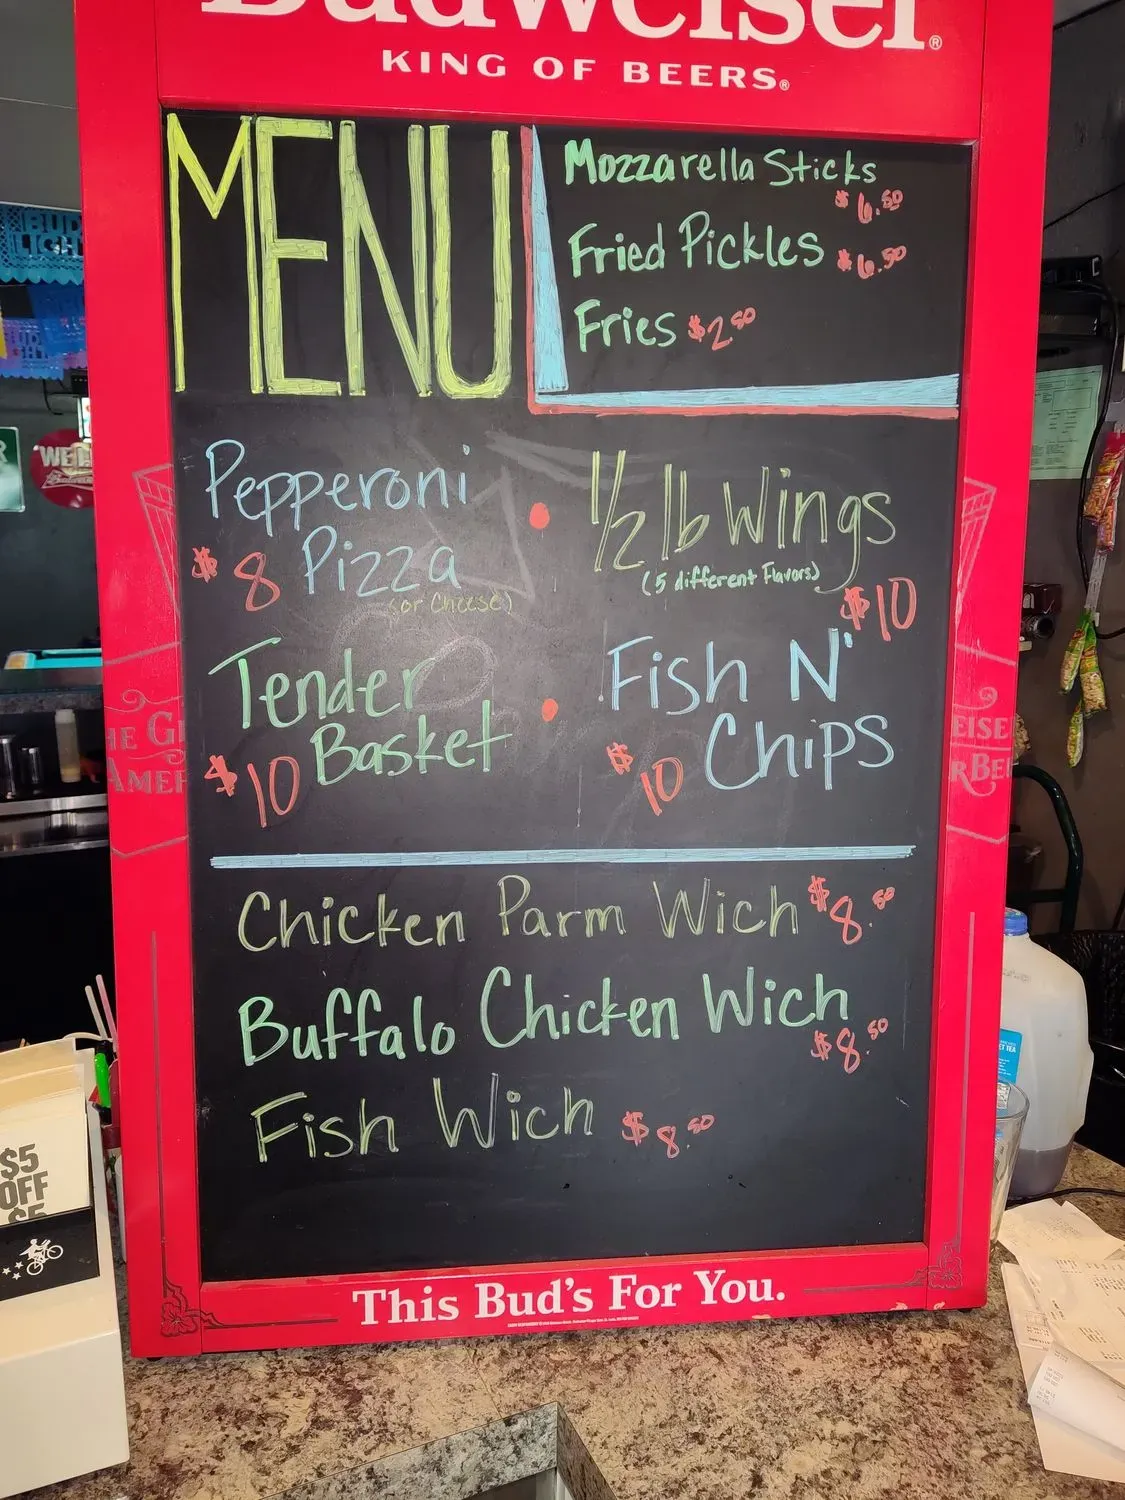 Budweiser®
KING OF BEERS®
MENU
Mozzarella Sticks
$6.50
Fried Pickles $6.50
Fries $2.50
Pepperoni
$8 Pizza
(or Cheese)
1/2 lb Wings
(5 different Flavors)
$10
Tender
Basket
$10
Fish N'
Chips
$10
Chicken Parm Wich $8.50
Buffalo Chicken Wich
$8.50
Fish Wich $8.50
This Bud's For You.
BUD
LIGHT
WE
$5
OFF